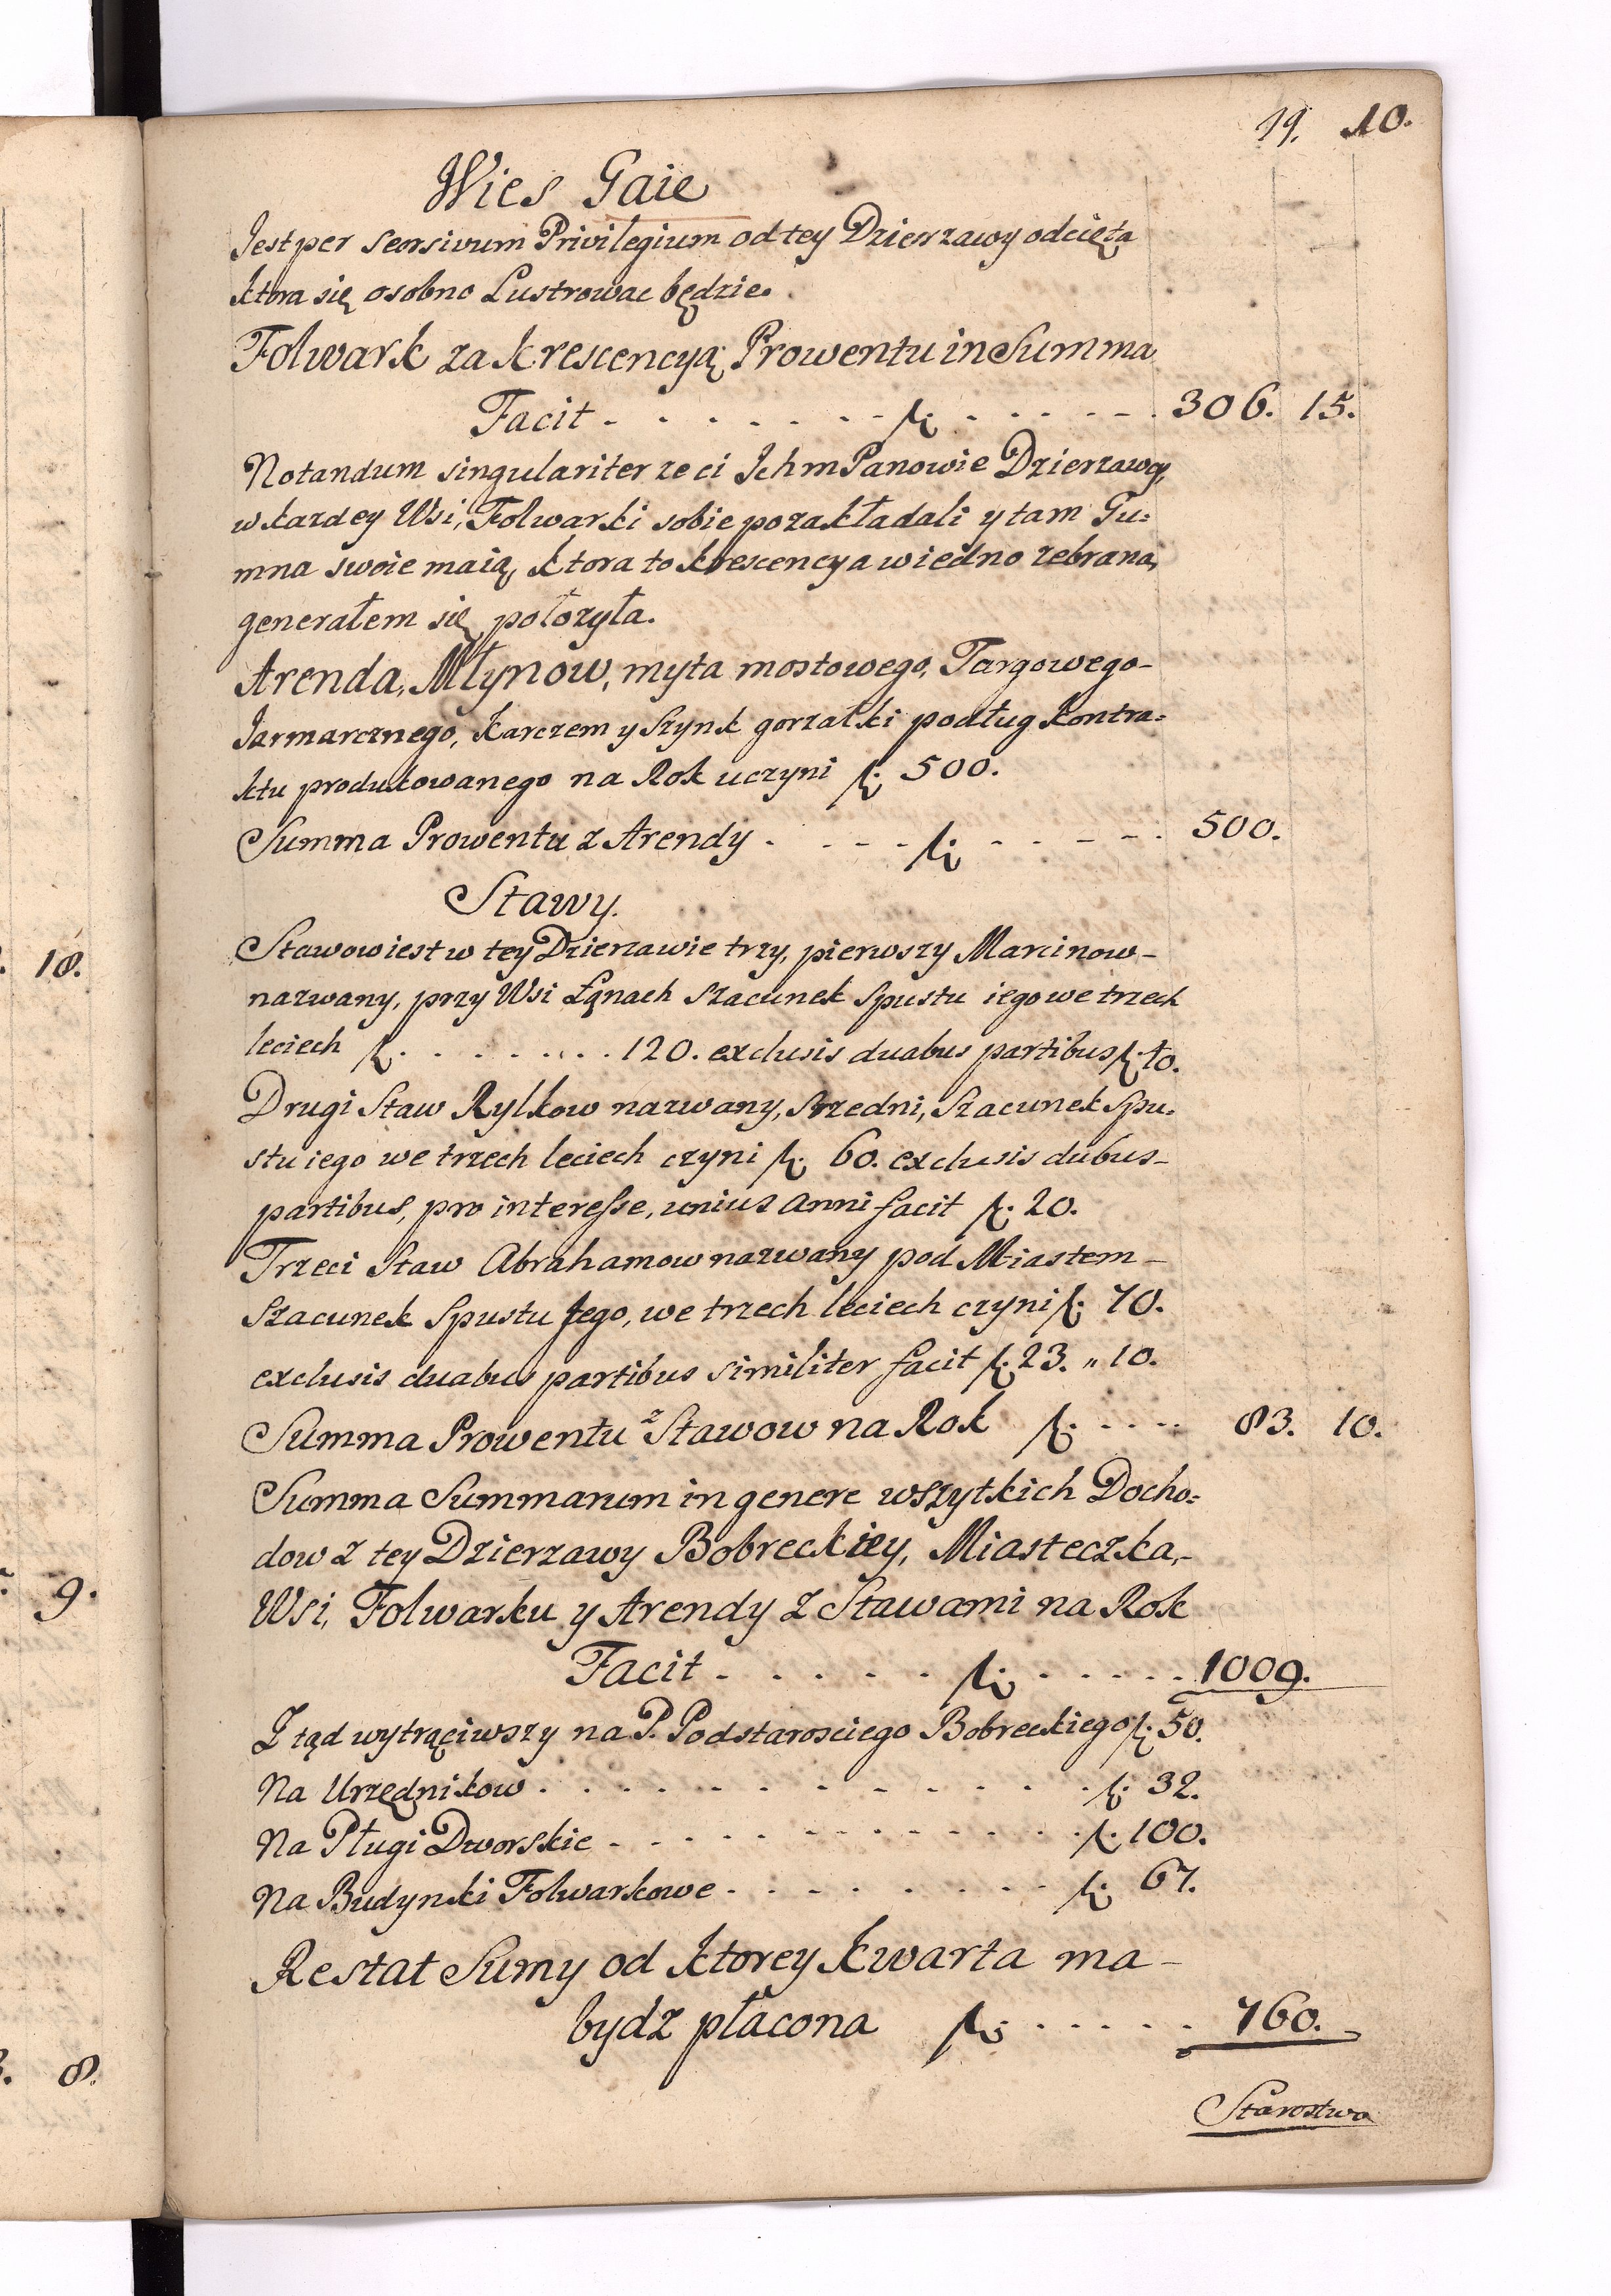 19. 10.
Wies Gaie
Jest per Seorsivum Privilegium od tey Dzierzawy odcięta
ktora się osobno Lustrowac będzie.
Folwark za krescencyą Prowentu in Summa
Facit - - - - - - - - - - - - 306. 15.
Notandum singulariter ze ci Ichm Panowie Dzierzawcy,
w kazdey Wsi, Folwarki sobie pozakładali y tam Gu=
mna swoie maią, ktora to krescencya wiedno zebrana,
generałem się połozyła.
Arenda, Młynow, myta mostowego, Targowego-
Jarmarcznego, karczem y Szynk gorzałki podług kontra=
ktu produkowanego na Rok uczyni f. 500.
Summa Prowentu z Arendy - - - - f. - - - - 500.
Stawy.
Stawow iest w tey Dzierzawie trzy, pierwszy Marcinow-
nazwany, przy Wsi Łąnach Szacunek Spustu iego we trzech
leciech f. . . . . . . . . 120. exclusis duabus partibus f. 40.
Drugi Staw Rylkow nazwany, Srzedni, Szacunek Spu=
stu iego we trzech leciech czyni f. 60. exclusis dubus-
partibus, pro interesse, unius anni facit f. 20.
Trzeci Staw Abrahamow nazwany pod Miastem-
Szacunek Spustu Jego, we trzech leciech czyni f. 70.
exclusis duabus partibus similiter facit f. 23. „ 10.
Summa Prowentu z Stawow na Rok f. - - - - 83. 10.
Summa Summarum in genere wszytkich Docho=
dow z tey Dzierzawy Bobreckiey, Miasteczka,-
Wsi, Folwarku y Arendy z Stawami na Rok
Facit - - - - - f. - - - - - 1009.
Z tąd wytrąciwszy na P. Podstarosciego Bobreckiego f. 50.
Na Urzędnikow - - - - - - - - - - - f. 32.
Na Pługi Dworskie - - - - - - - - - - f. 100.
Na Budynki Folwarkowe - - - - - - - - f. 67.
Restat Sumy od ktorey kwarta ma-
bydz płacona f. - - - - - 760.
Starostwa
18.
9.
8.